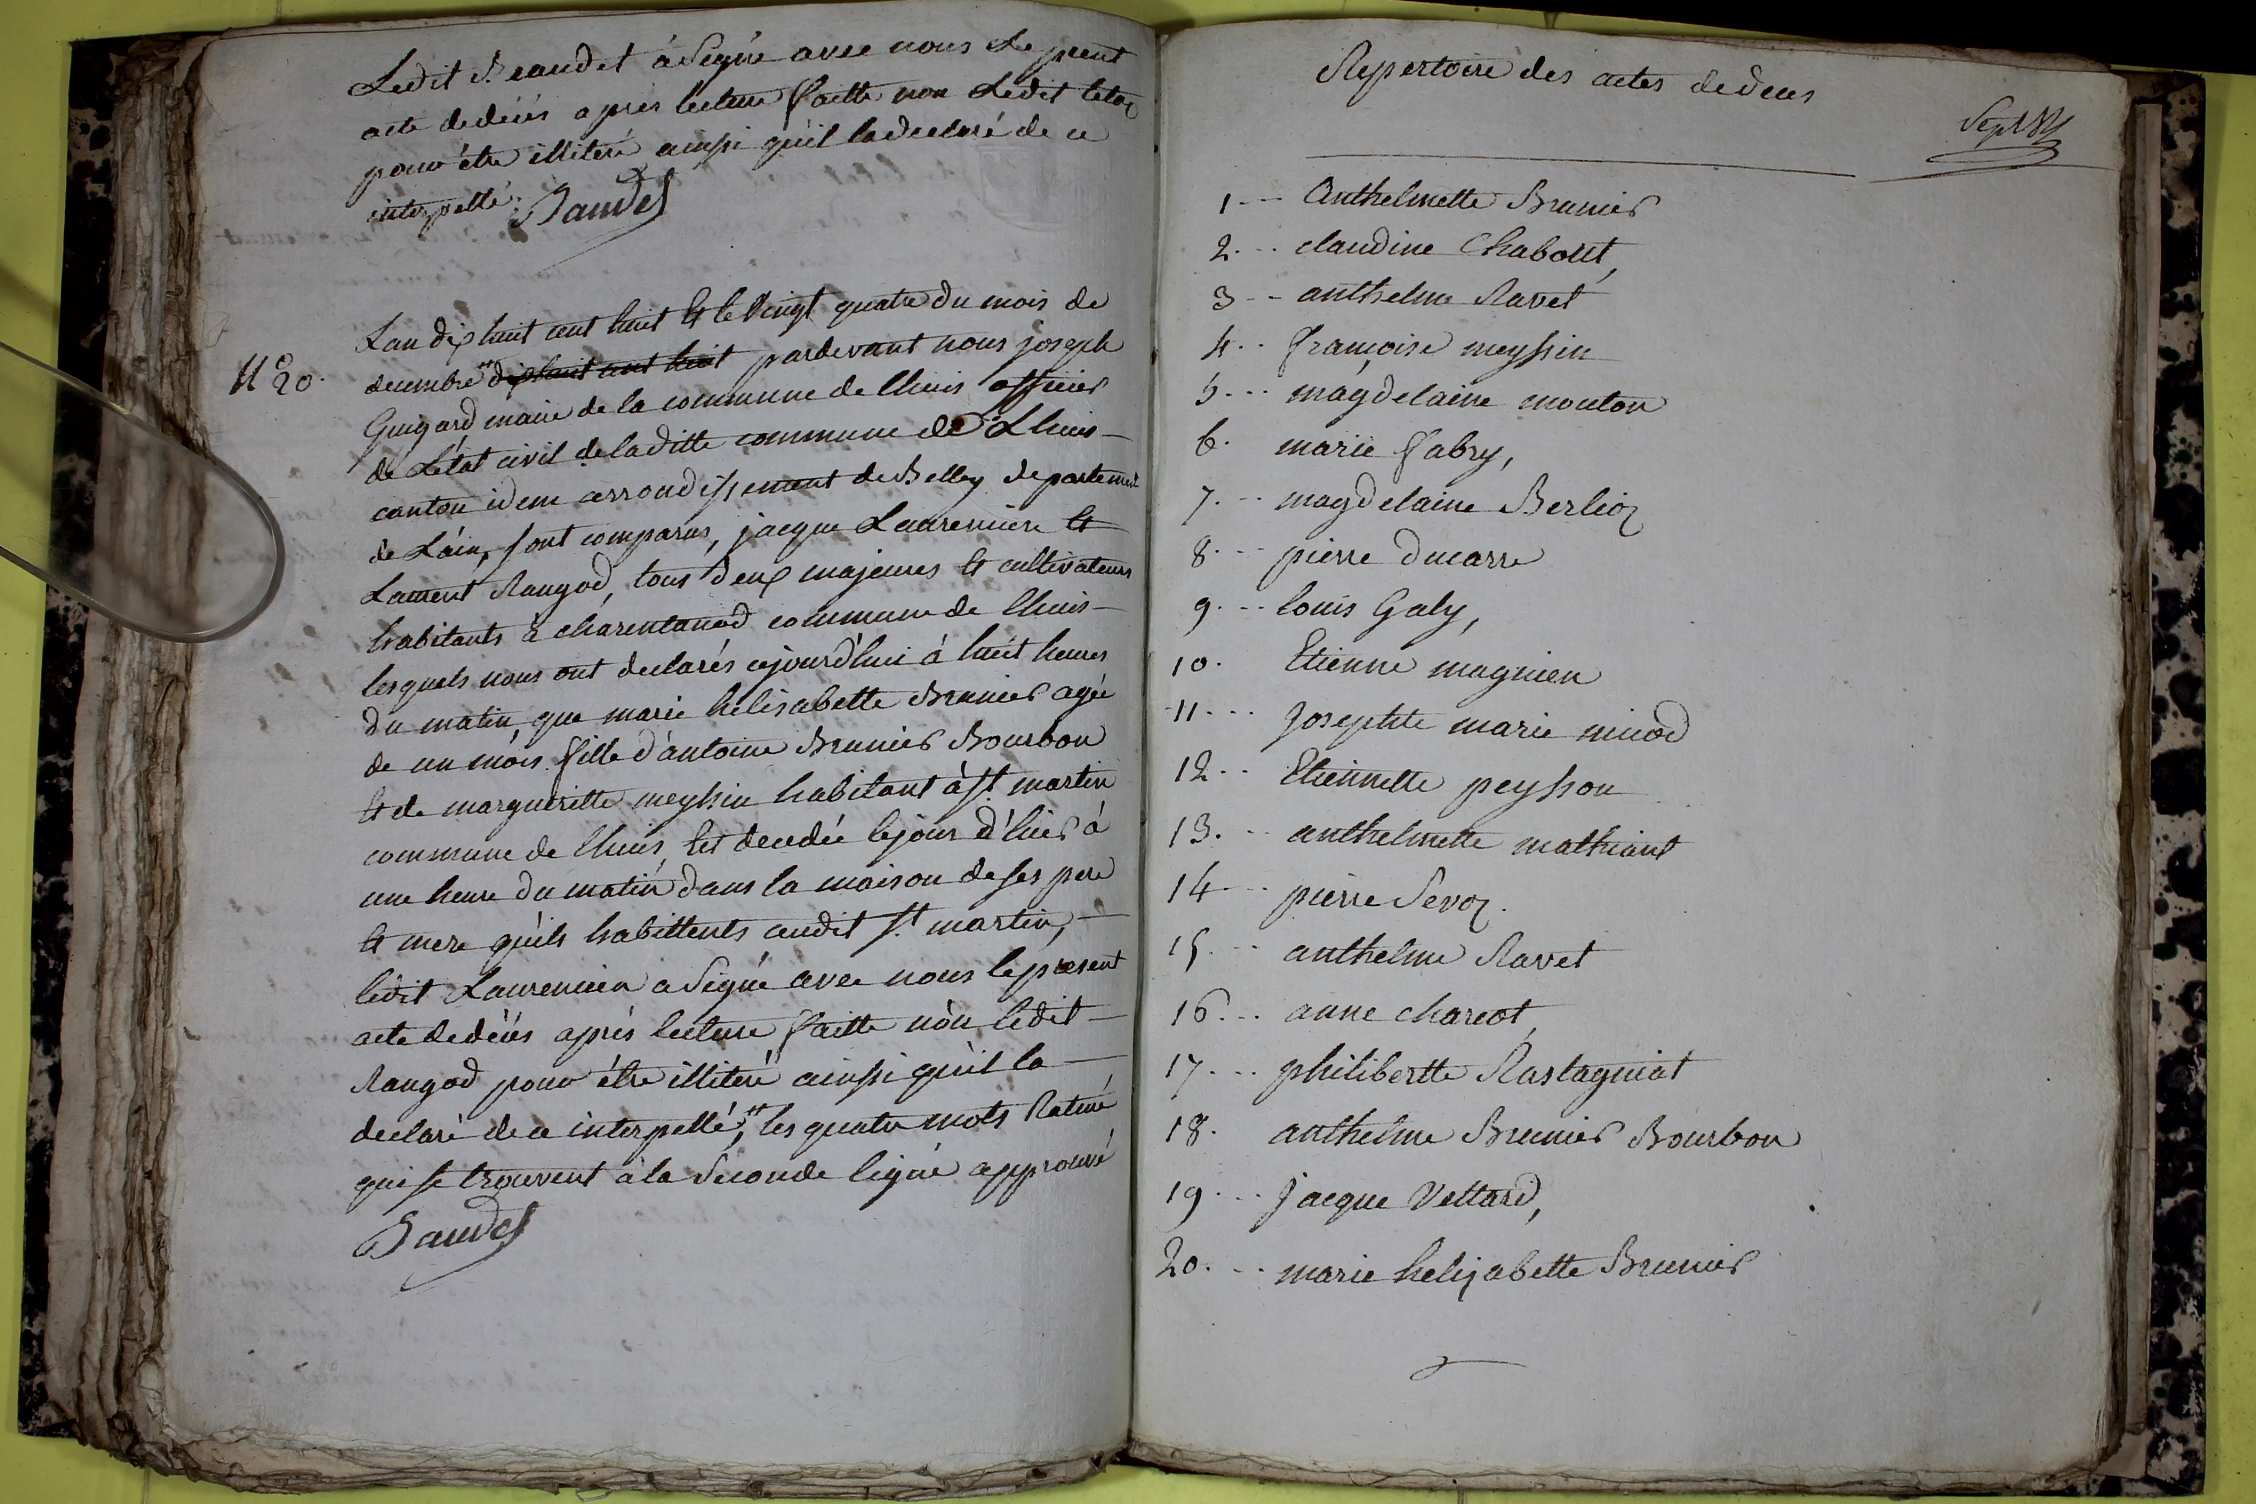 Ledit Beaudet à Signé avec nous Le prent
acte dedécés aprés lecture faitte non Ledit
pour être illiteré ainsi quil ladeclaré de ce
interpellé. Baudet
N° 20.
Lan dix huit cent huit et le vingt quatre du mois de
decembre dixhuit cent huit pardevant nous joseph
Guigard maire de la commune de lhuis officier
de Létat civil deladitte commune de Lhuis
canton idem arrondissement de Belley departement
de Láin, sont comparus, jacque Laurencin et
Laurent Rangod, tous deux majeures et cultivateurs
habitants à charentanod commune de lhuis
lesquels nous ont declarés cejourd'hui à huit heures
du matin, que marie helisabette Brunier agée
de un mois fille d'antoine Brunier Bourbon
et de margueritte meyssin habitant à st martin
commune de lhuis, est decedée lejour d'hier à
une heure du matin dans la maison de ses pere
et mere qu'ils habittents audit st martin,
ledit Laurencin a Signé avec nous le present
acte dedécés aprés lecture faitte nòn ledit
Rangod pour étre illiteré ainsi qu'il la
declaré de ce interpellé, les quatre mots Raturé
qui se trouvent à la Seconde ligne approuvé
Baudet
Repertoire des actes dedeces
1 --- Anthelmette Brunier
2. -- claudine Chaboud,
3 -- anthelme Ravet
4. -- françoise meyssin
5 --- magdelaine mouton
6. marie fabry,
7. -- magdelaine Berlioz
8. -- pierre ducarre
9. -- louis Galy,
10. Etienne magnien
11. --- Josephte marie micod
12. -- Etiennette peysson
13. -- anthelmette mathiant
14 -- pierre Sevoz.
15. -- anthelme Ravet
16. -- anne charcot,
17. -- philibertte Rastagniat
18. anthelme Brunier Bourbon
19. -- jacque Vettard,
20. -- marie helizabette Brunier